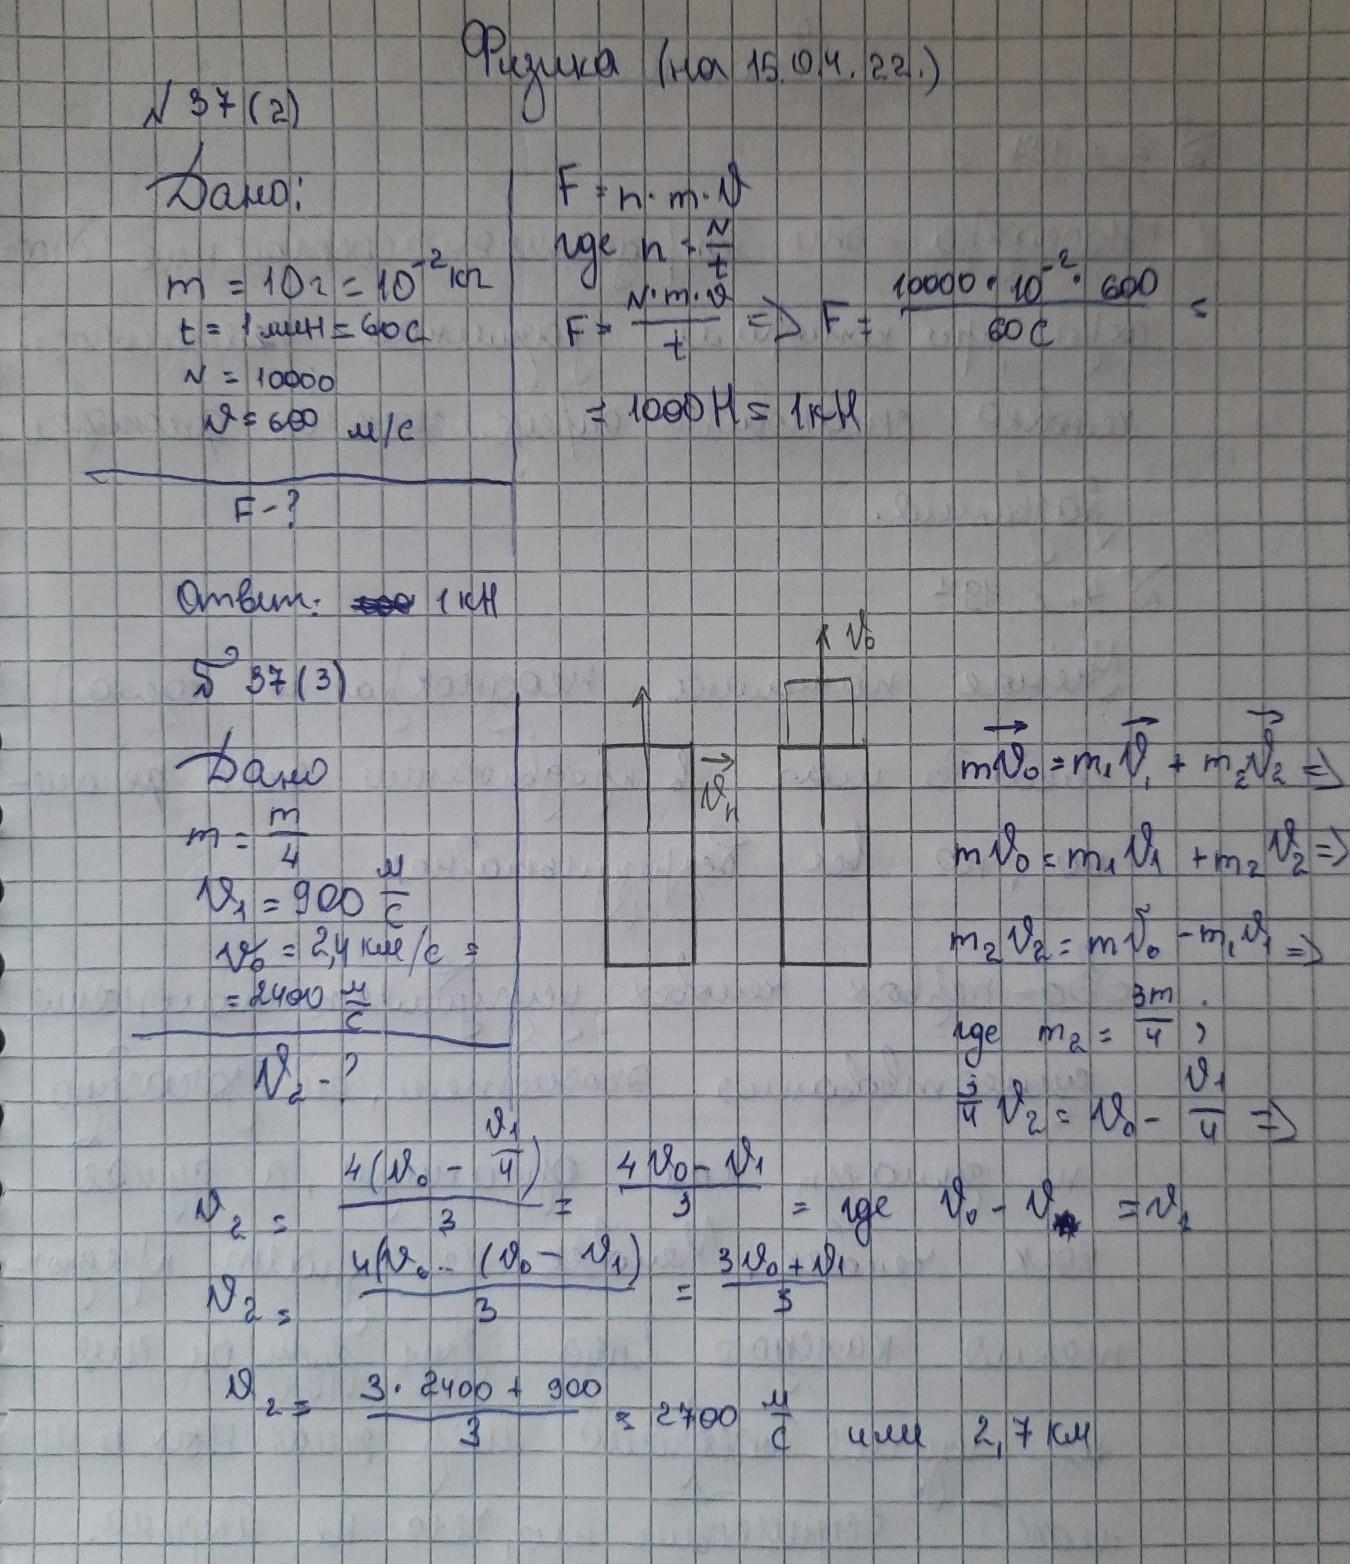 Физика (на 15.04.22.)
N 37(2)
Дано:
m = 10г = 10⁻² кг
t = 1 мин = 60с
N = 10000
v = 600 м/с
F - ?
F = n·m·v
где n = N/t
F = N·m·v/t => F = 10000·10⁻²·600/60с =
= 1000Н = 1кН
Ответ: 1кН
N 37(3)
Дано
m = m/4
v₁ = 900 м/с
v₀ = 2,4 км/с =
= 2400 м/с
v₂ - ?
vₙ
v₀
mv₀ = m₁v₁ + m₂v₂ =>
mv₀ = m₁v₁ + m₂v₂ =>
m₂v₂ = mv₀ - m₁v₁ =>
где m₂ = 3m/4 ;
3/4 v₂ = v₀ - v₁/4 =>
v₂ = 4(v₀ - v₁/4)/3 = 4v₀ - v₁/3 = где v₀ - v = v₁
v₂ = 4(v₀ - (v₀ - v₁)/3 = 3v₀ + v₁/3
v₂ = 3·2400 + 900/3 = 2700 м/с или 2,7 км